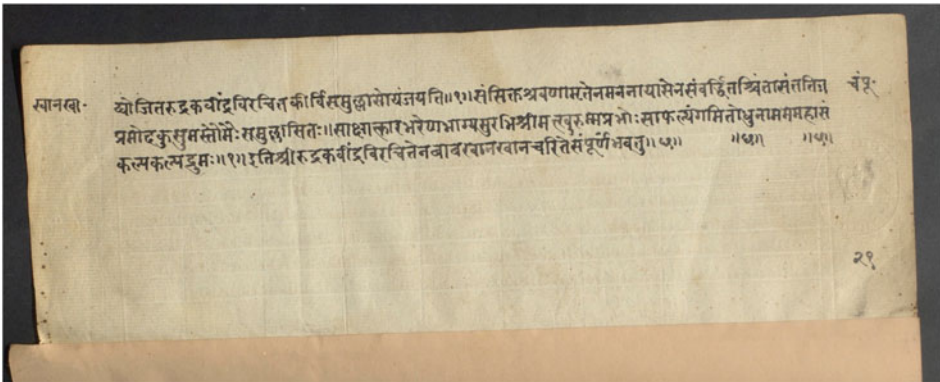 खानखा॰
द्योजितरुद्रकवींद्रविरचितकीर्तिसमुल्लासोयंजयति॥१॥संसिक्तश्रवणामृतेनमननायासेनसंवर्द्धितश्चिंतासंततिज
चंपू॰
प्रमोदकुसुमस्तोमैःसमुल्लासितः॥साक्षात्कारभरेणभाग्यसुरभिश्रीमत्खुरुमप्रभोःसाफल्यंगमितोधुनाममहासं
कल्पकल्पद्रुमः॥१॥इतिश्रीरुद्रकवींद्रविरचितेनबाबखानखानचरितेसंपूर्णंभवतु॥ ॥छ॥ ॥छ॥
२९